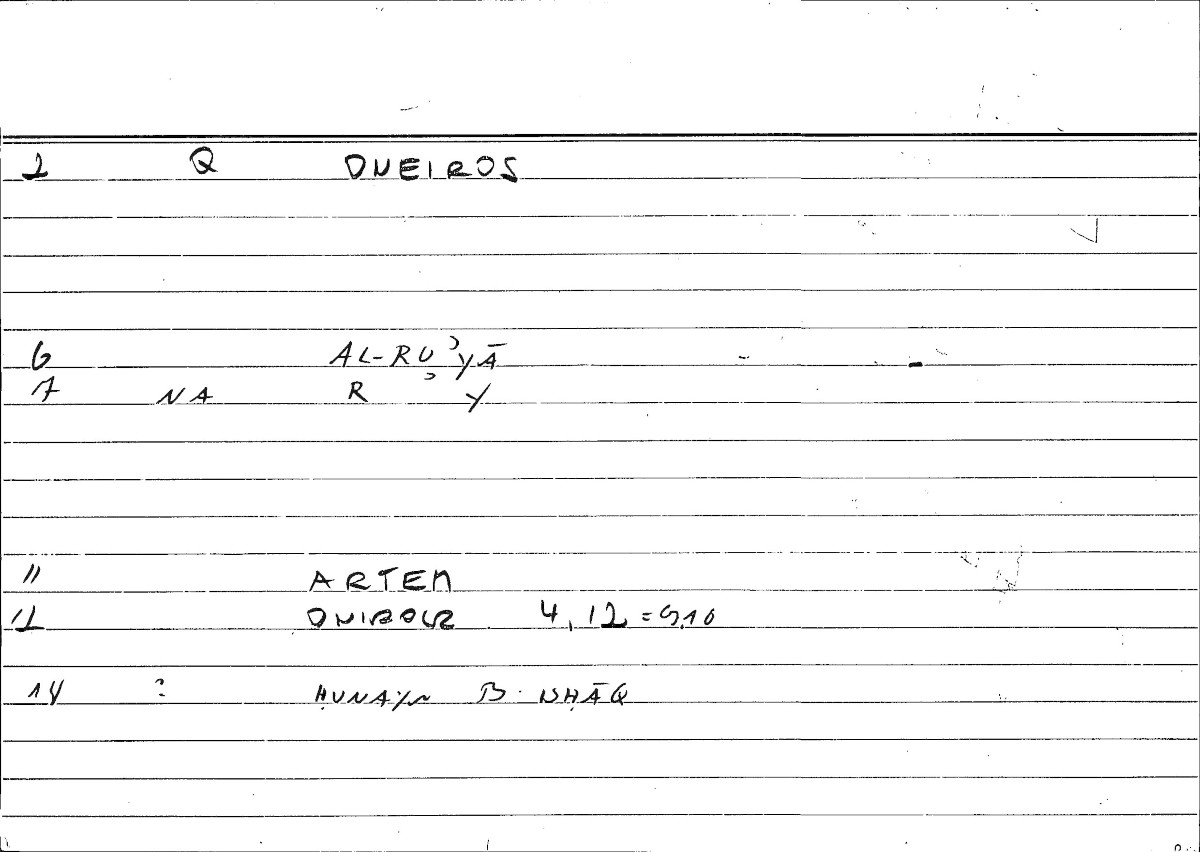 2 Q ONEIROS
6 AL-RUʾYĀ
7 NA R ʾ Y
11 ARTEM
12 ONIROCR 4,12 = 9,10
14 : ḤUNAYN B. ISḤĀQ